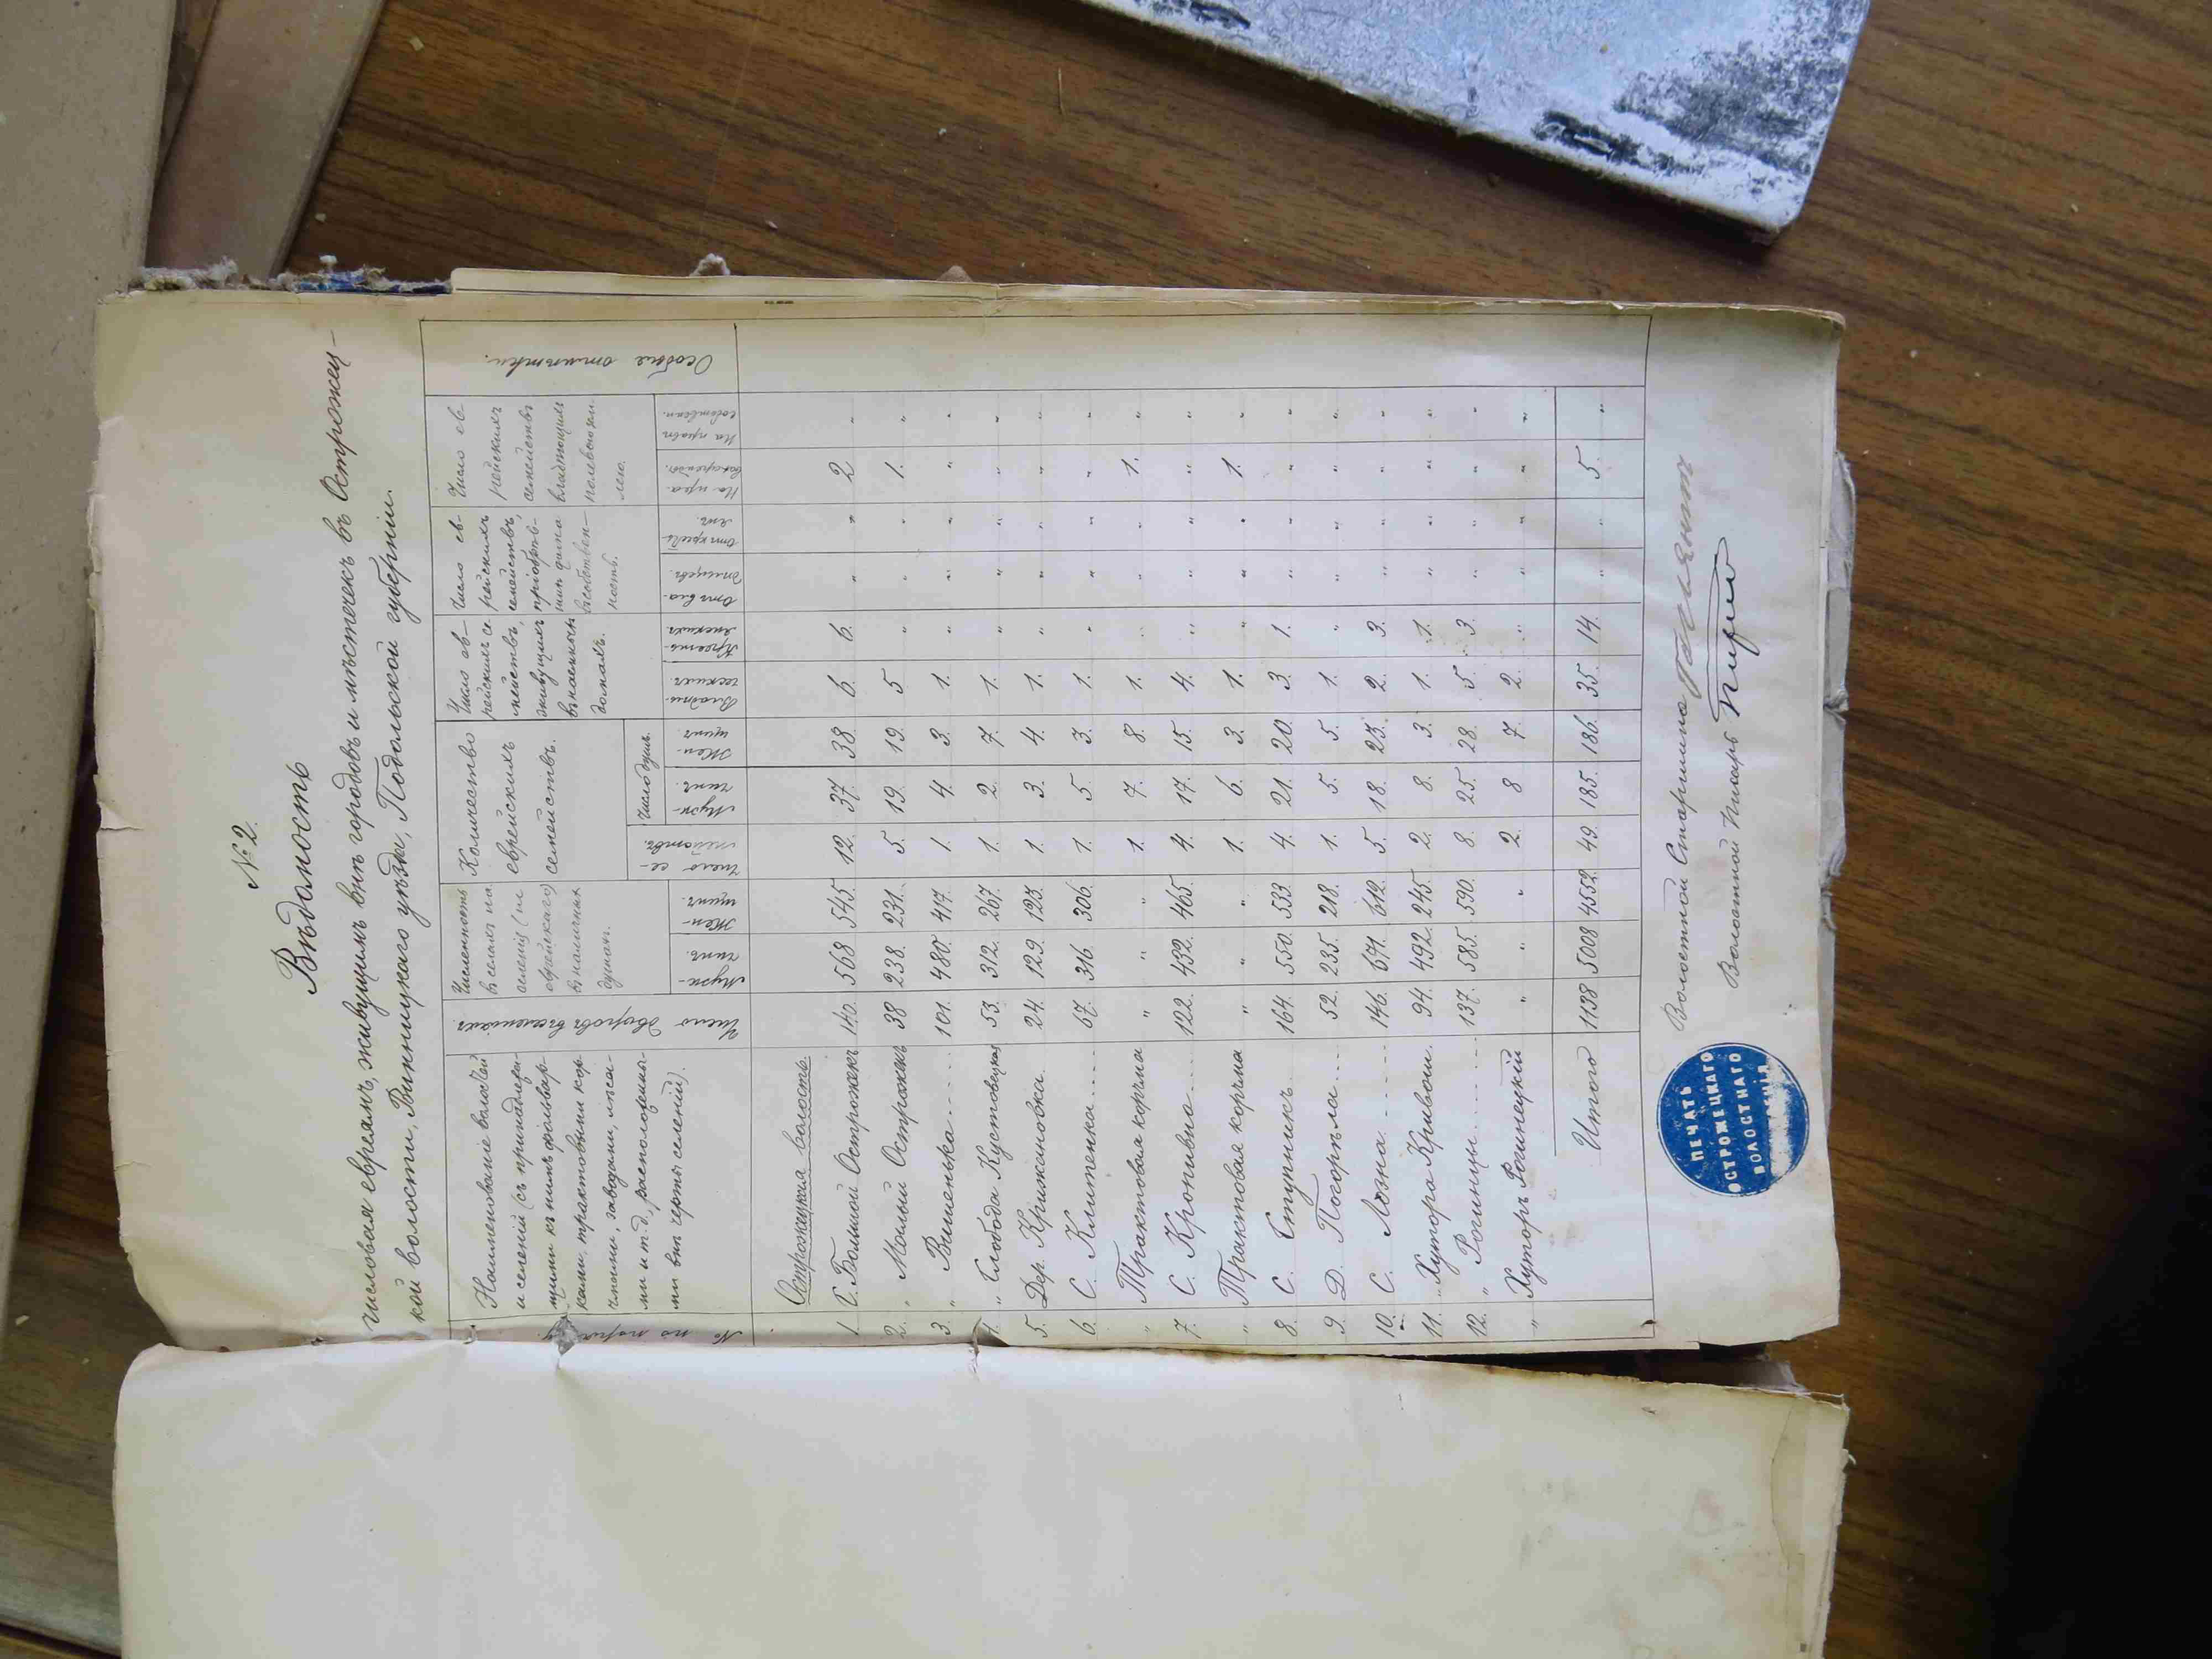 № 2.
Вѣдомость
числовая евреямъ, живущимъ внѣ городовъ и мѣстечекъ въ Острожец-
кой волости, Винницкаго уѣзда, Подольской губерніи.
№ по поряд.
Наименованіе волостей
и селеній (съ принадлежа-
щими къ нимъ фольвар-
ками, трактовыми кор-
чмами, заводами, лѣса-
ми и т.д., расположенны-
ми внѣ черты селеній).
Число дворовъ въ селеніяхъ.
Численность
въ селахъ на
селенія (не
еврейскаго)
въ наличныхъ
душахъ.
Муж-
чинъ.
Жен-
щинъ.
Количество
еврейскихъ
семействъ.
Число се-
мействъ.
Число душъ.
Муж-
чинъ.
Жен-
щинъ.
Число ев-
рейскихъ се-
мействъ,
живущихъ
въ наемныхъ
домахъ.
Владѣль-
ческихъ
Кресть-
янскихъ
Число ев-
рейскихъ
семействъ,
пріобрѣв-
шихъ дома
въ собствен-
ность.
Отъ вла-
дѣльцевъ.
Отъ кресть-
янъ.
Число ев-
рейскихъ
семействъ
владѣющихъ
полевою зем-
лею.
На пра.
вѣ аренды.
На правѣ
собствен.
Особые отмѣтки.
Острожецкая волость.
1. С. Большой Острожекъ 140. 568 545. 12. 37. 38. 6. 6. " " 2 "
2. " Малый Острожекъ 38 238. 231. 5. 19. 19. 5 " " " 1. "
3. " Вишенька 101. 480. 417. 1. 4. 3. 1. " " " " "
4. " Слобода Кустовецкая 53. 312. 267. 1. 2. 7. 1. " " " " "
5. Дер. Крижановка 24. 129. 123. 1. 3. 4. 1. " " " " "
6. С. Клитенка 67. 316. 306. 1. 5. 3. 1. " " " " "
" Трактовая корчма " " " 1. 7. 8. 1. " " " 1. "
7. С. Кропивна 122. 432. 465. 4. 17. 15. 4. " " " " "
" Трактовая корчма " " " 1. 6. 3. 1. " " " 1. "
8. С. Ступникъ 164. 550. 533. 4. 21. 20. 3. 1. " " " "
9. Д. Погорѣла 52. 235. 218. 1. 5. 5. 1. " " " " "
10. С. Лозна 146. 671. 612. 5. 18. 23. 2. 3. " " " "
11. " Хутора Кривоши. 94. 492. 245. 2. 8. 3. 1. 1. " " " "
12. " Рогинцы 137. 585. 590. 8. 25. 28. 5. 3. " " " "
" Хуторъ Рогинецкій " " " 2. 8 7. 2. " " " " "
Итого 1138 5008 4552. 49. 185. 186. 35. 14. " " 5. "
Волостной Старшина
Волостной Писарь
ПЕЧАТЬ
ОСТРОЖЕЦКАГО
ВОЛОСТНАГО